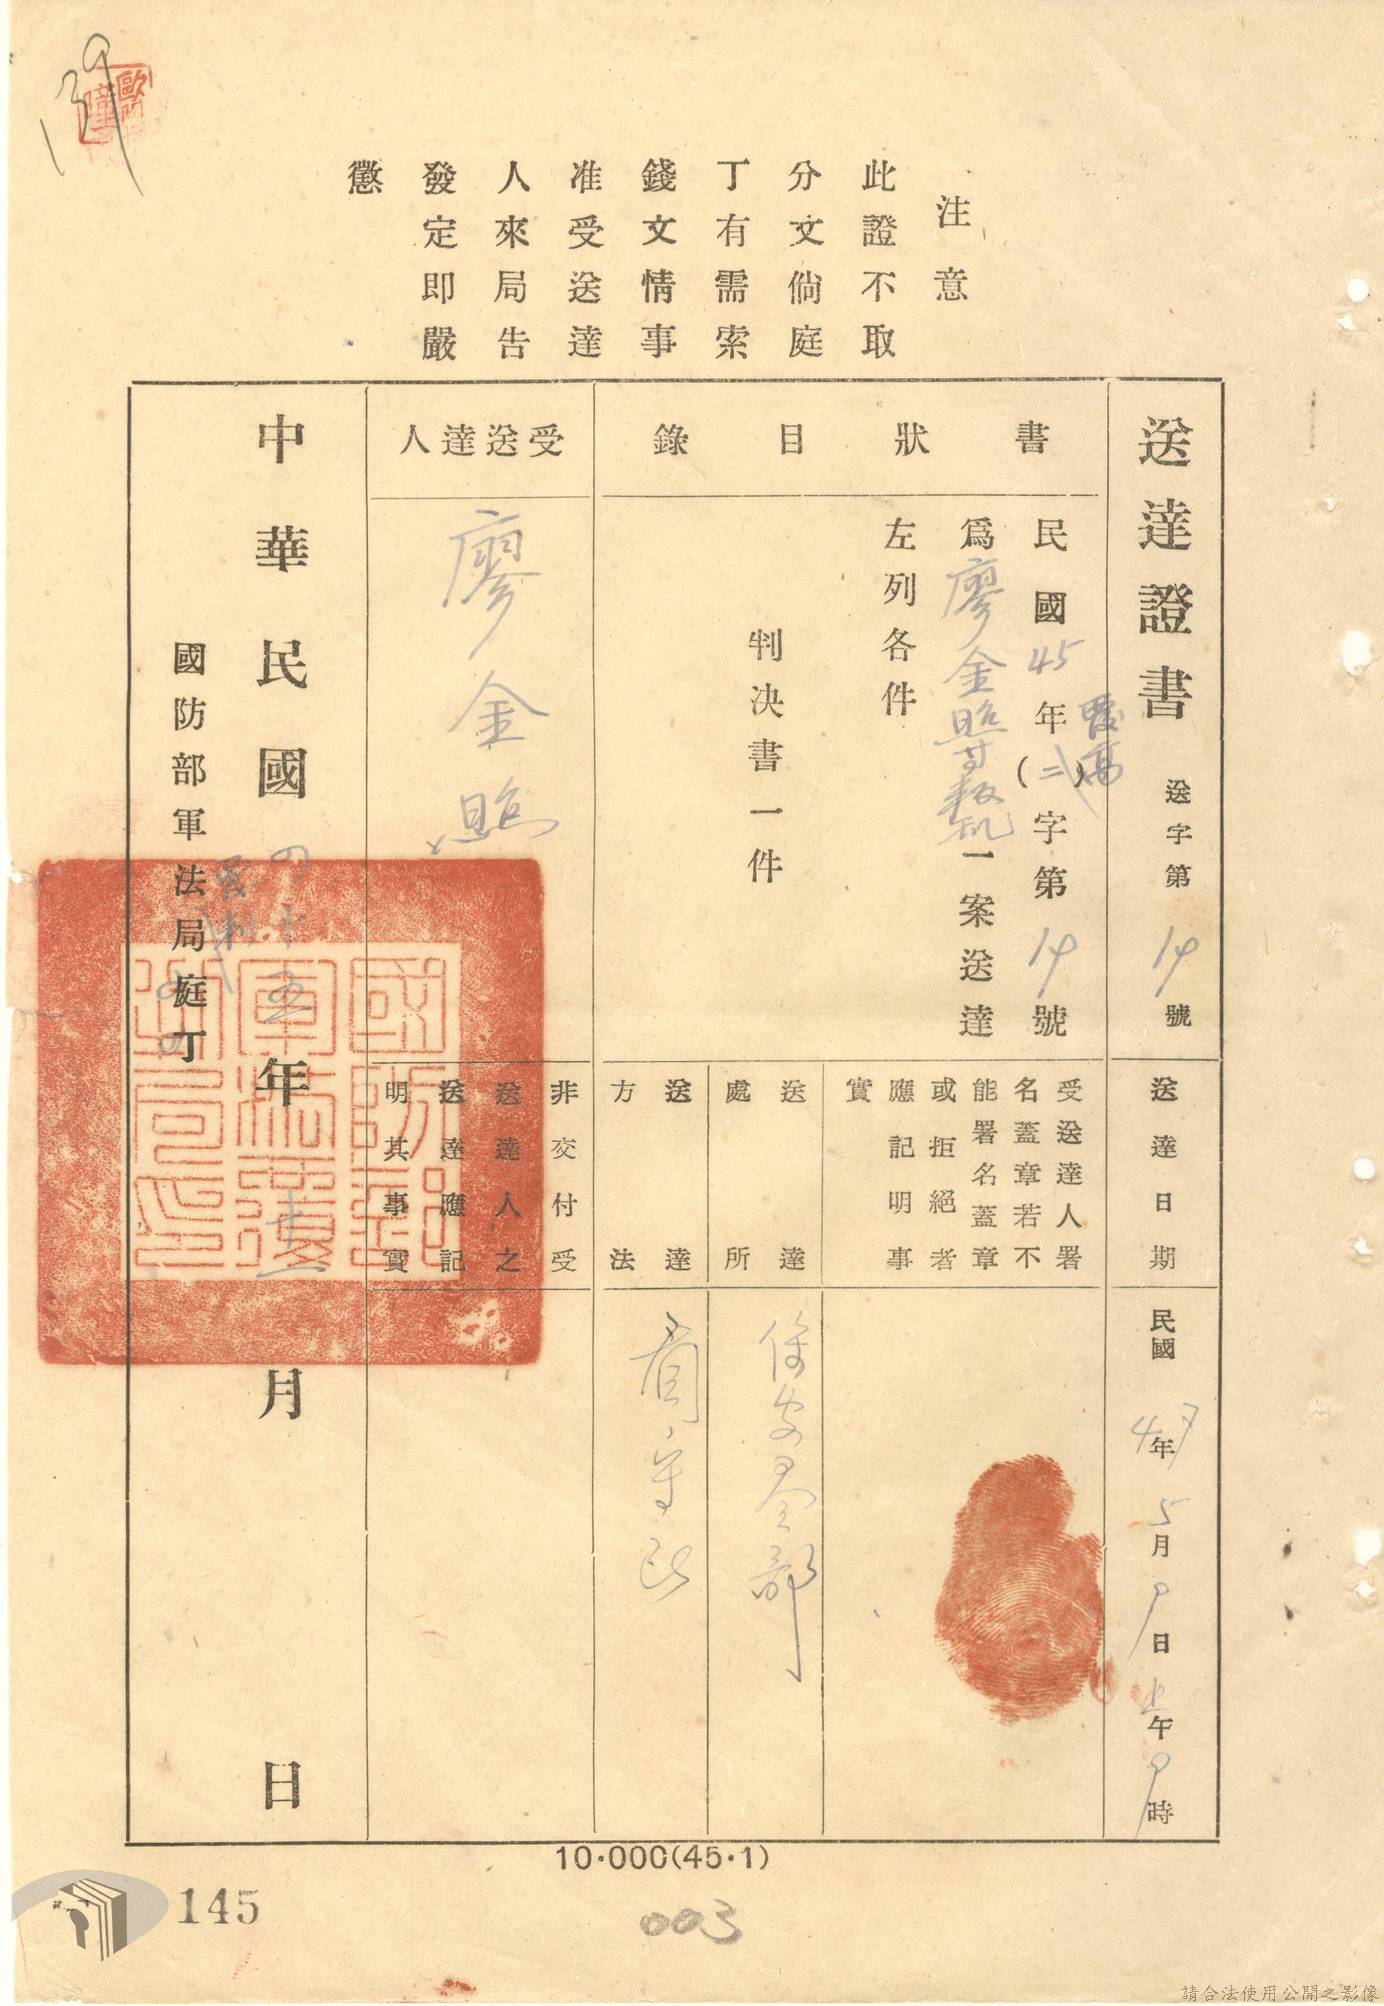 139
注意
此證不取
分文倘庭
丁有需索
錢文情事
准受送達
人來局告
發定即嚴
懲
送達證書
送字第14號
書狀目錄
民國45年(二)字第14號
覆高
為廖金照等叛亂一案送達
左列各件
判決書一件
受送達人
廖金照
送達日期
民國45年5月9日上午9時
受送達人署
名蓋章若不
能署名蓋章
或拒絕者
應記明事
實
送達處所
保安司令部
送達方法
看守所
非交付受
送達人之
送達應記
明其事實
中華民國四十五年月日
國防部軍法局庭丁
國防部軍法局印
10·000(45·1)
145
003
請合法使用公開之影像